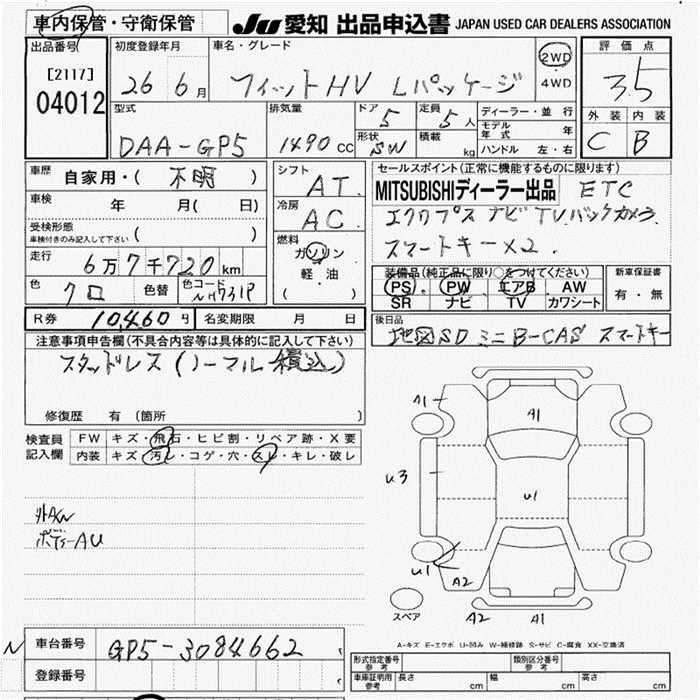 車内保管・守衛保管 JU 愛知 出品申込書 JAPAN USED CAR DEALERS ASSOCIATION
出品番号 初度登録年月 車名・グレード 評価点
[2117] 26 6月 フィットHV Lパッケージ 2WD ・4WD 3.5
04012 型式 排気量 ドア 定員 ディーラー・並行 外装 内装
DAA-GP5 1490 CC 5 5人 モデル年式 年 C B
形状 SW 積載 kg ハンドル 左・右
車歴 自家用・( 不明 ) シフト AT セールスポイント(正常に機能するものに限ります)
車検 年 月( 日) 冷房 AC MITSUBISHIディーラー出品 ETC
受検形態 車検付きのみ記入して下さい ( ) 燃料 ガソリン エクリプス ナビ TV バックカメラ
走行 6万7千720km 軽・油 スマートキー×2.
色 クロ 色替 色コード NH731P ( ) 装備品(純正品に限り○をつけてください) 新車保証書
PS PW エアB AW 有・無
SR ナビ TV カワシート
R券 10,460円 名変期限 月 日 後日品
地図SD ミニB-CAS スマートキー
注意事項申告欄(不具合内容等は具体的に記入して下さい)
スタッドレス(ノーマル積込)
修復歴 有 (箇所 )
検査員記入欄 FW キズ・飛石・ヒビ割・リペア跡・X要
内装 キズ・汚レ・コゲ・穴・スレ・キレ・破レ
A1 A1
U3 U1
外AW
ボディーAU
U1 A2
スペア A2 A1
A-キズ E-エクボ U-凹み W-補修跡 S-サビ C-腐食 XX-交換済
N 車台番号 GP5-3084662
登録番号
形式指定番号 参考 類別区分番号 参考
車庫証明用 参考 長さ cm 幅 cm 高さ cm